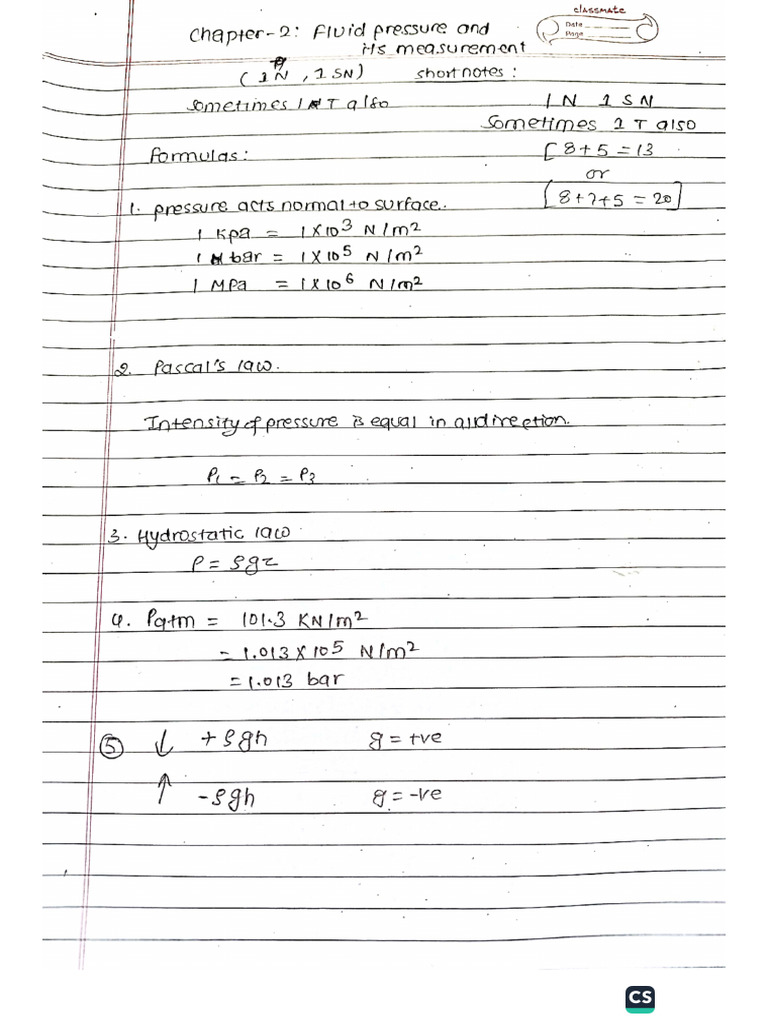 classmate
Date
Page
Chapter-2: Fluid pressure and
its measurement
(1N, 1SN) short notes:
sometimes 1 T also
1N 1SN
Sometimes 1T also
Formulas:
[8+5=13
or
[8+7+5=20]
1. pressure acts normal to surface.
1 Kpa = 1×10³ N/m²
1 bar = 1×10⁵ N/m²
1 MPa = 1×10⁶ N/m²
2. Pascal's law.
Intensity of pressure is equal in all direction.
P₁ = P₂ = P₃
3. Hydrostatic law
P = ρgz
4. Patm = 101.3 KN/m²
= 1.013×10⁵ N/m²
= 1.013 bar
⑤ ↓ +ρgh g = +ve
↑ -ρgh g = -ve
CS